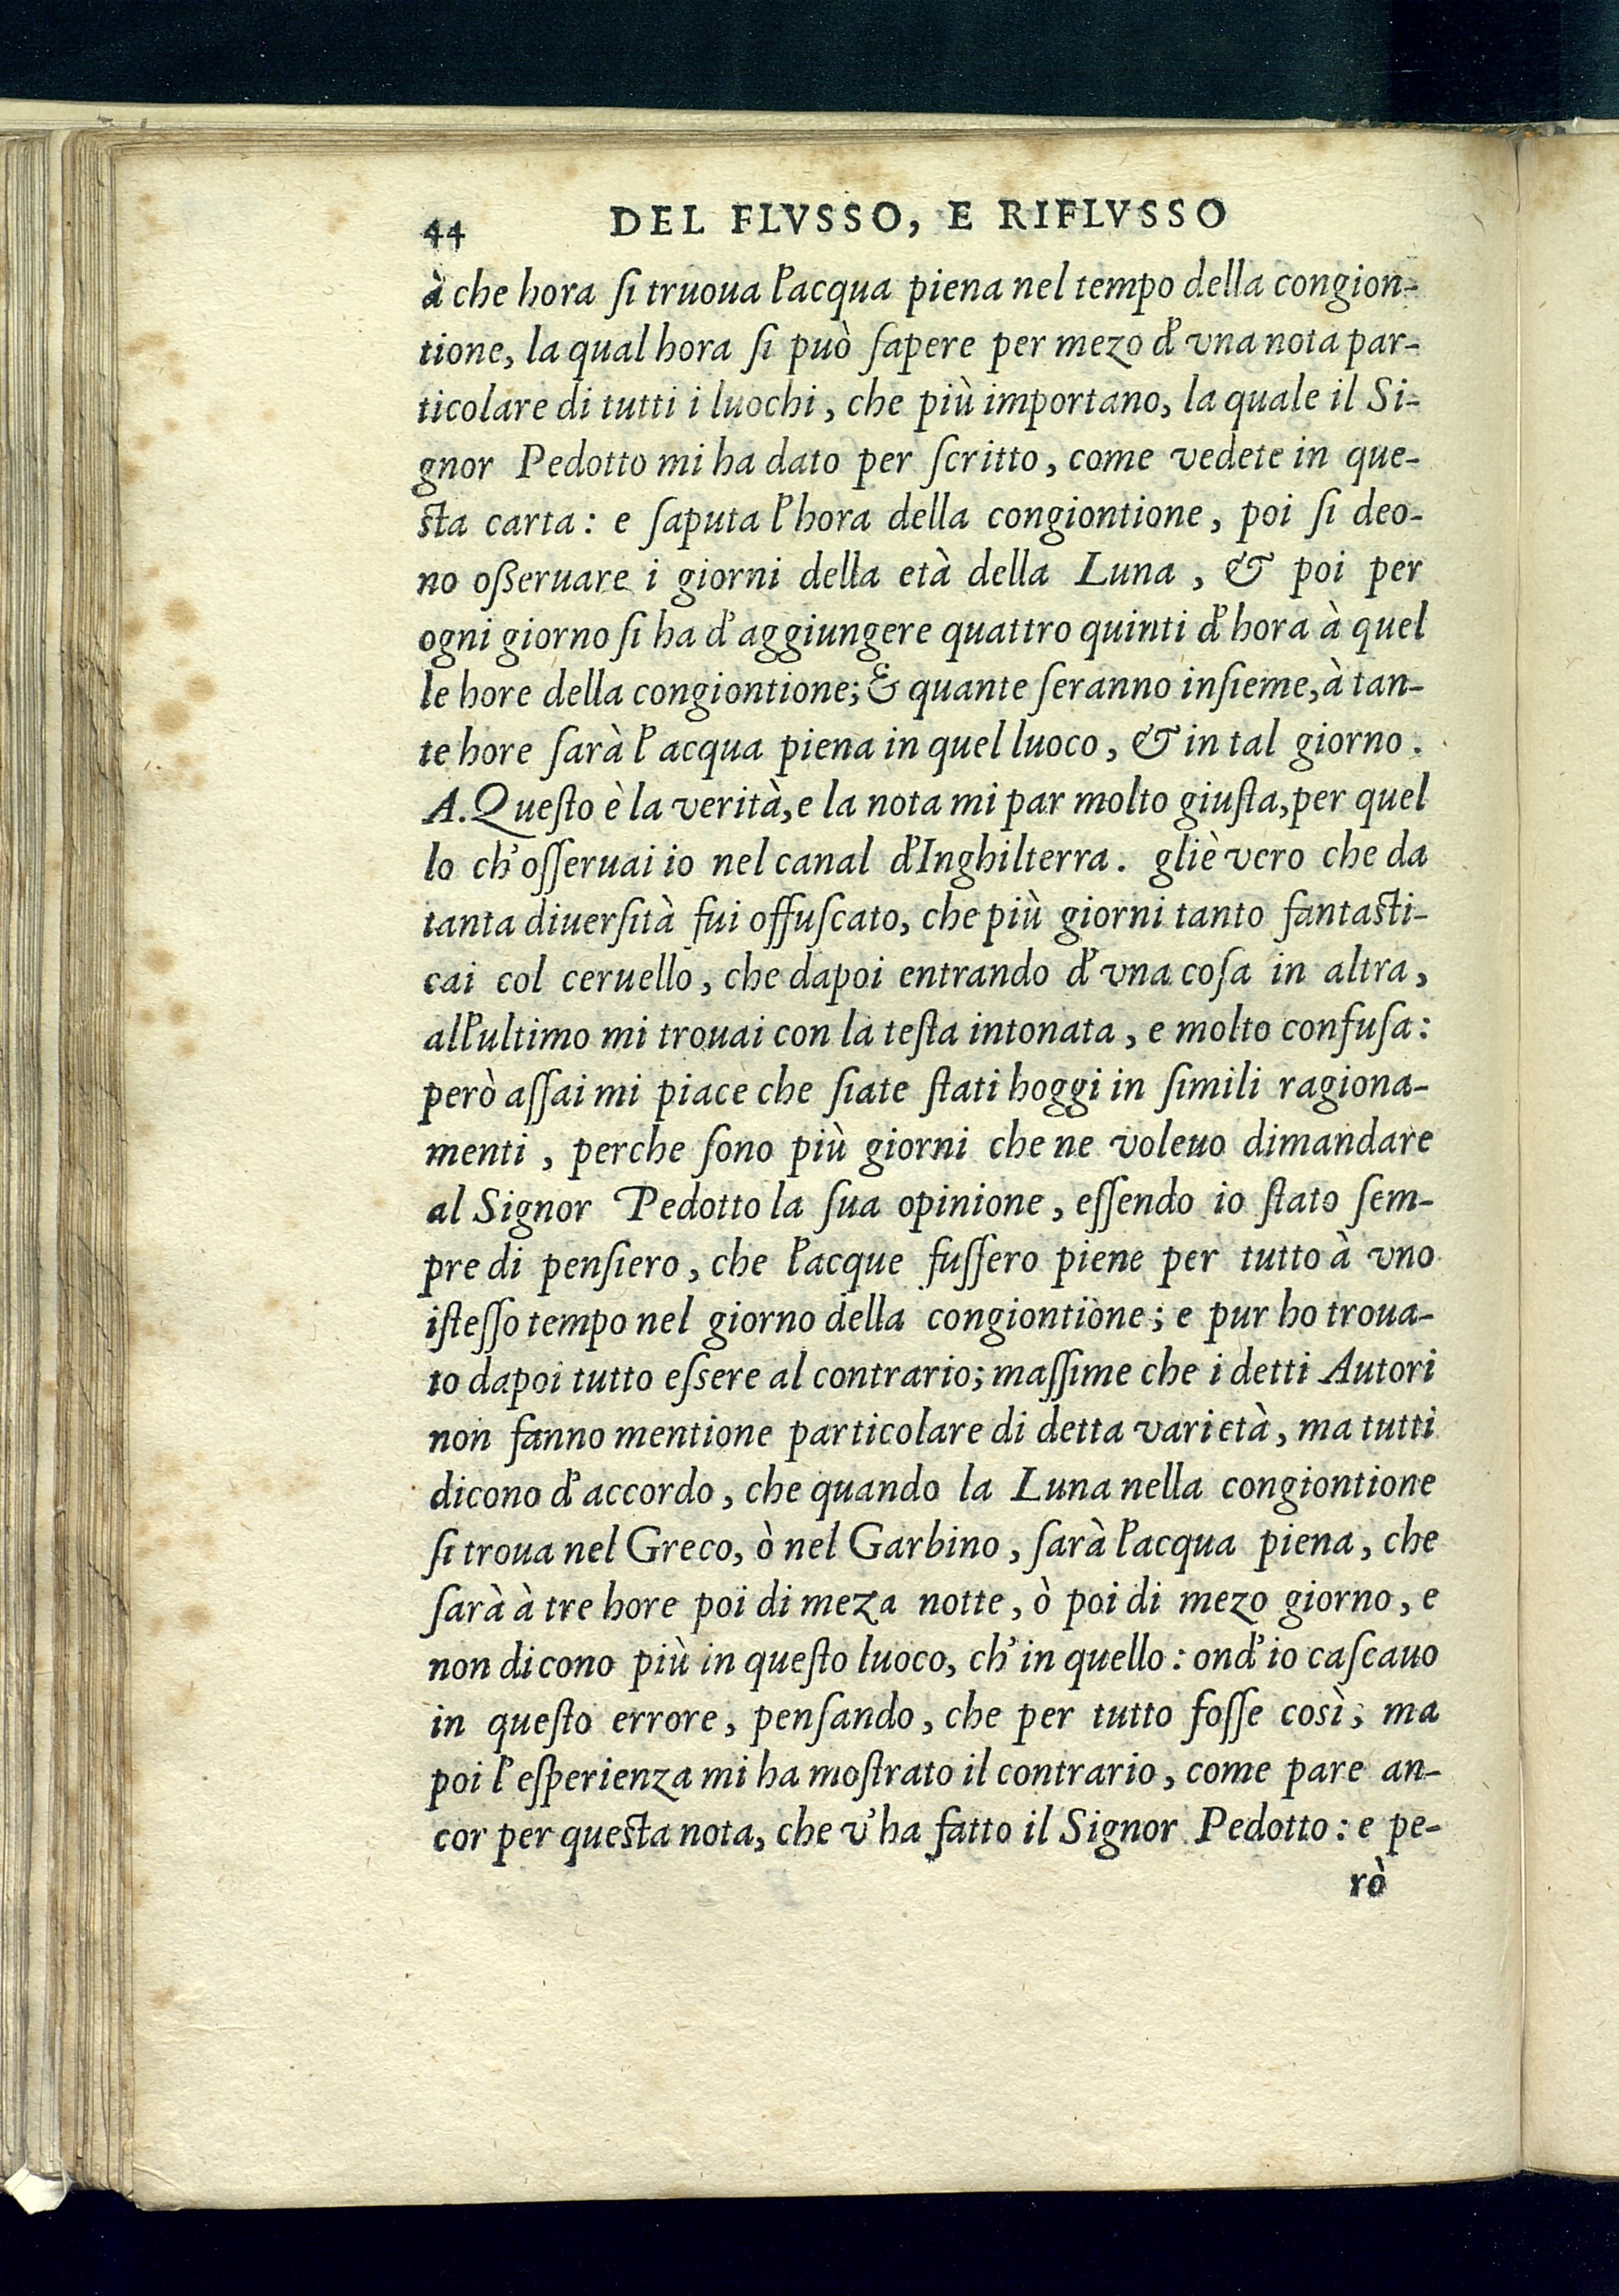 44 DEL FLVSSO, E RIFLVSSO
à che hora ſi truoua l'acqua piena nel tempo della congion-
tione, la qual hora ſi può ſapere per mezo d'vna nota par-
ticolare di tutti i luochi, che più importano, la quale il Si-
gnor Pedotto mi ha dato per ſcritto, come vedete in que-
ſta carta: e ſaputa l'hora della congiontione, poi ſi deo-
no oßeruare i giorni della età della Luna, & poi per
ogni giorno ſi ha d'aggiungere quattro quinti d'hora à quel
le hore della congiontione; & quante ſeranno inſieme, à tan-
te hore ſarà l'acqua piena in quel luoco, & in tal giorno.
A. Queſto è la verità, e la nota mi par molto giuſta, per quel
lo ch'oſſeruai io nel canal d'Inghilterra. gliè vero che da
tanta diuerſità fui offuſcato, che più giorni tanto fantaſti-
cai col ceruello, che dapoi entrando d'vna coſa in altra,
all'ultimo mi trouai con la teſta intonata, e molto confuſa:
però aſſai mi piace che ſiate ſtati hoggi in ſimili ragiona-
menti, perche ſono più giorni che ne voleuo dimandare
al Signor Pedotto la ſua opinione, eſſendo io ſtato ſem-
pre di penſiero, che l'acque fuſſero piene per tutto à vno
iſteſſo tempo nel giorno della congiontione; e pur ho troua-
to dapoi tutto eſsere al contrario; maſſime che i detti Autori
non fanno mentione particolare di detta varietà, ma tutti
dicono d'accordo, che quando la Luna nella congiontione
ſi troua nel Greco, ò nel Garbino, ſarà l'acqua piena, che
ſarà à tre hore poi di meza notte, ò poi di mezo giorno, e
non dicono più in queſto luoco, ch'in quello: ond'io caſcauo
in queſto errore, penſando, che per tutto foſſe così; ma
poi l'eſperienza mi ha moſtrato il contrario, come pare an-
cor per queſta nota, che v'ha fatto il Signor Pedotto: e pe-
rò